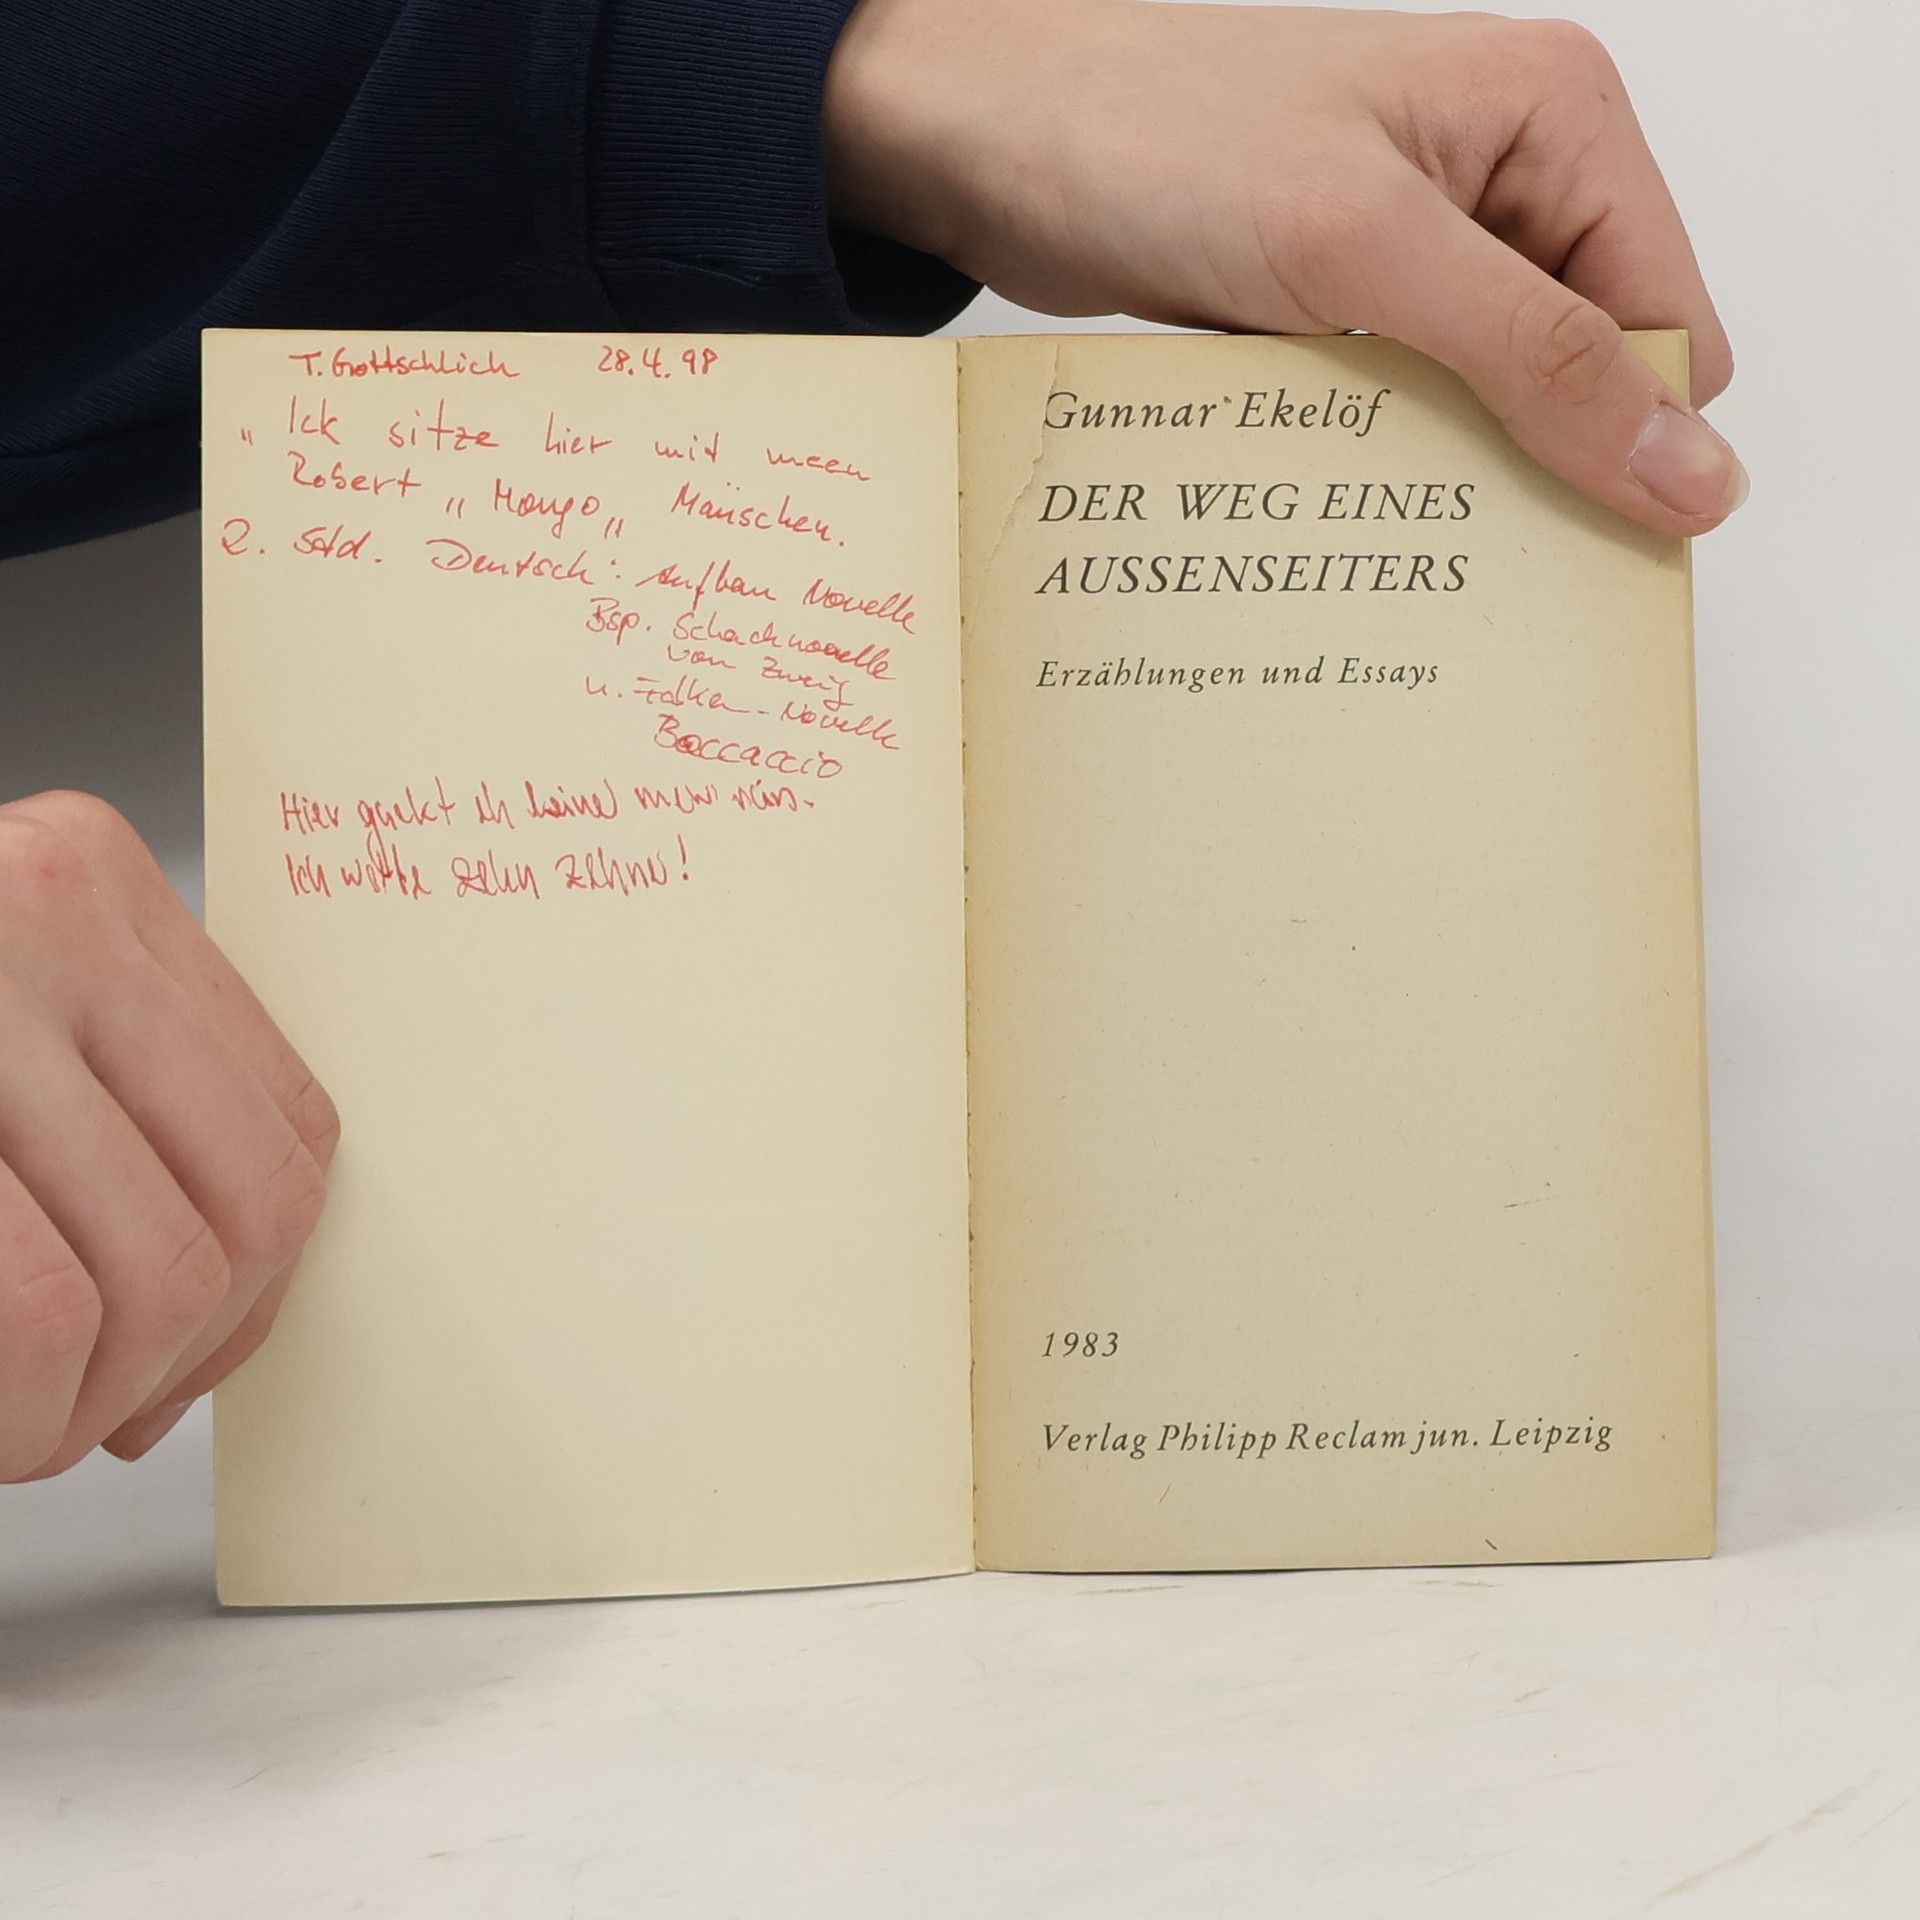 T. Gottschlich 28.4.98
„ Ick sitze hier mit meen
Robert „ Mongo „ Mäuschen.
2. Std. Deutsch: Aufbau Novelle
Bsp. Schachnovelle
von Zweig
u. Falken-Novelle
Boccaccio
Hier guckt eh keiner mehr rein.
Ich wette zehn Zehner!
Gunnar Ekelöf
DER WEG EINES
AUSSENSEITERS
Erzählungen und Essays
1983
Verlag Philipp Reclam jun. Leipzig